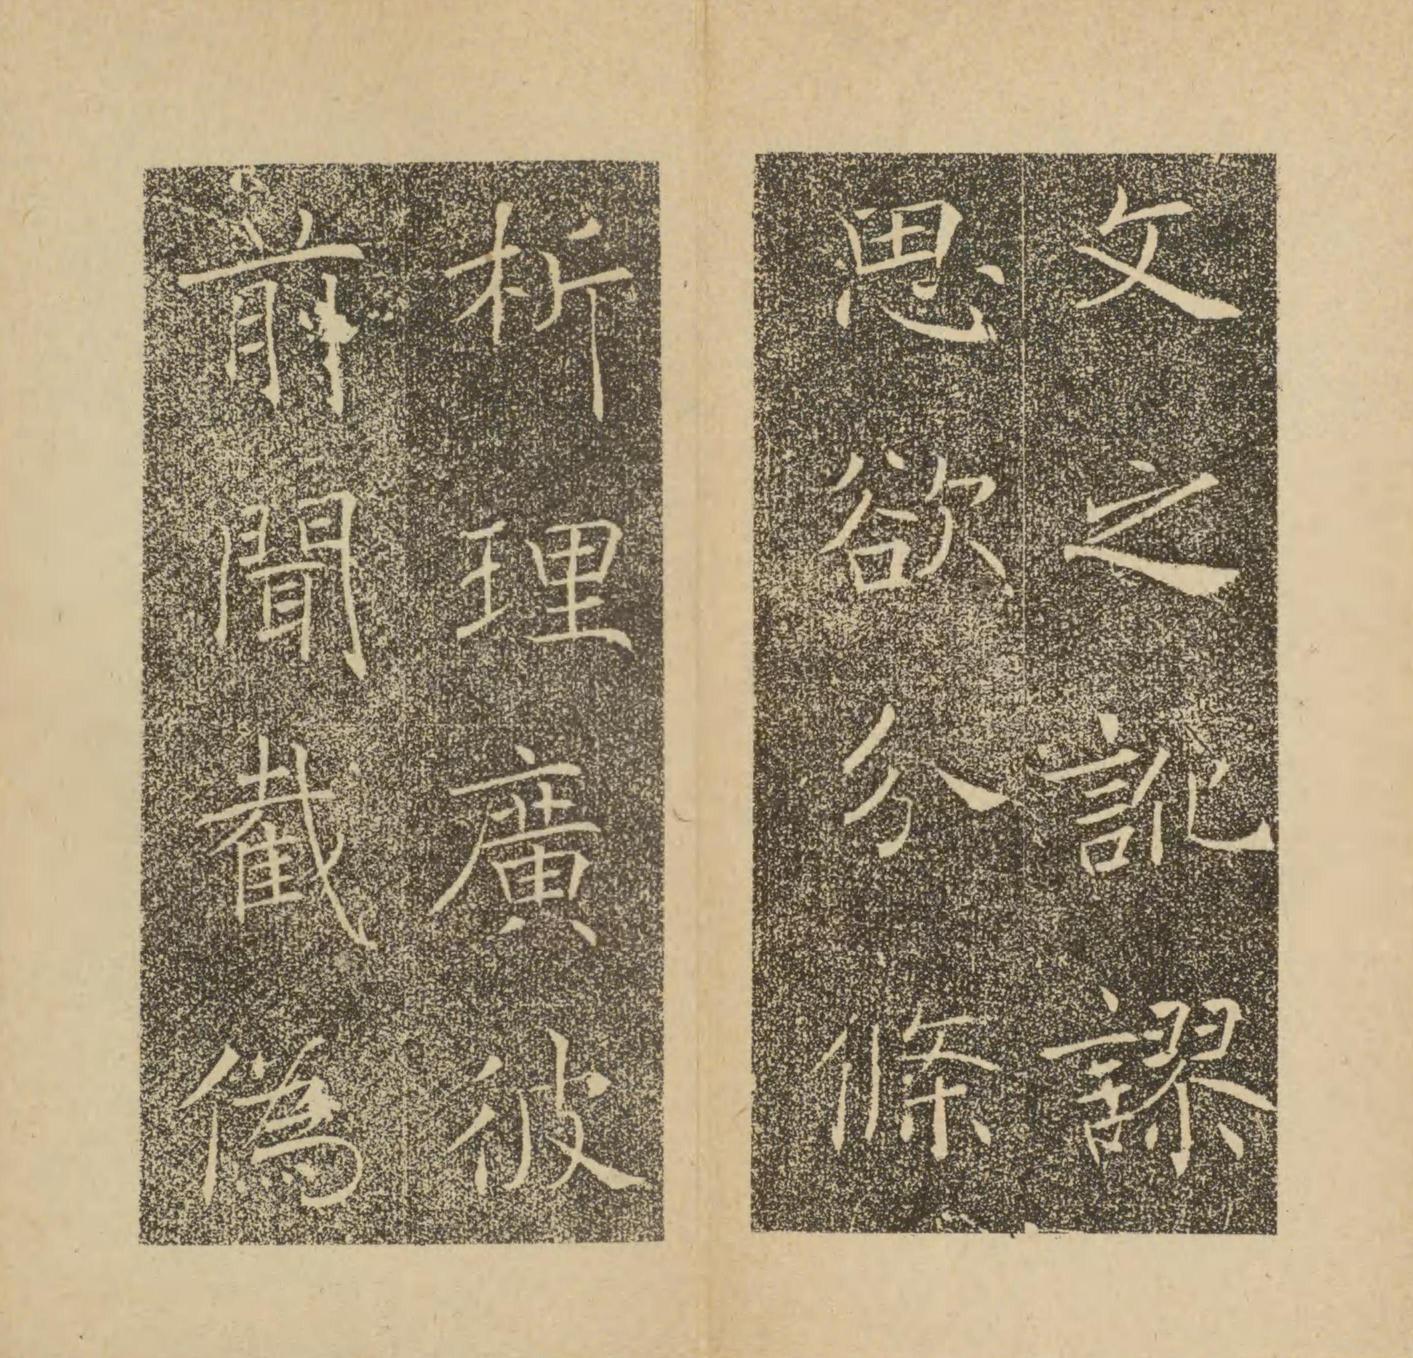 文之訛謬
思欲分條
析理廣彼
前聞截偽